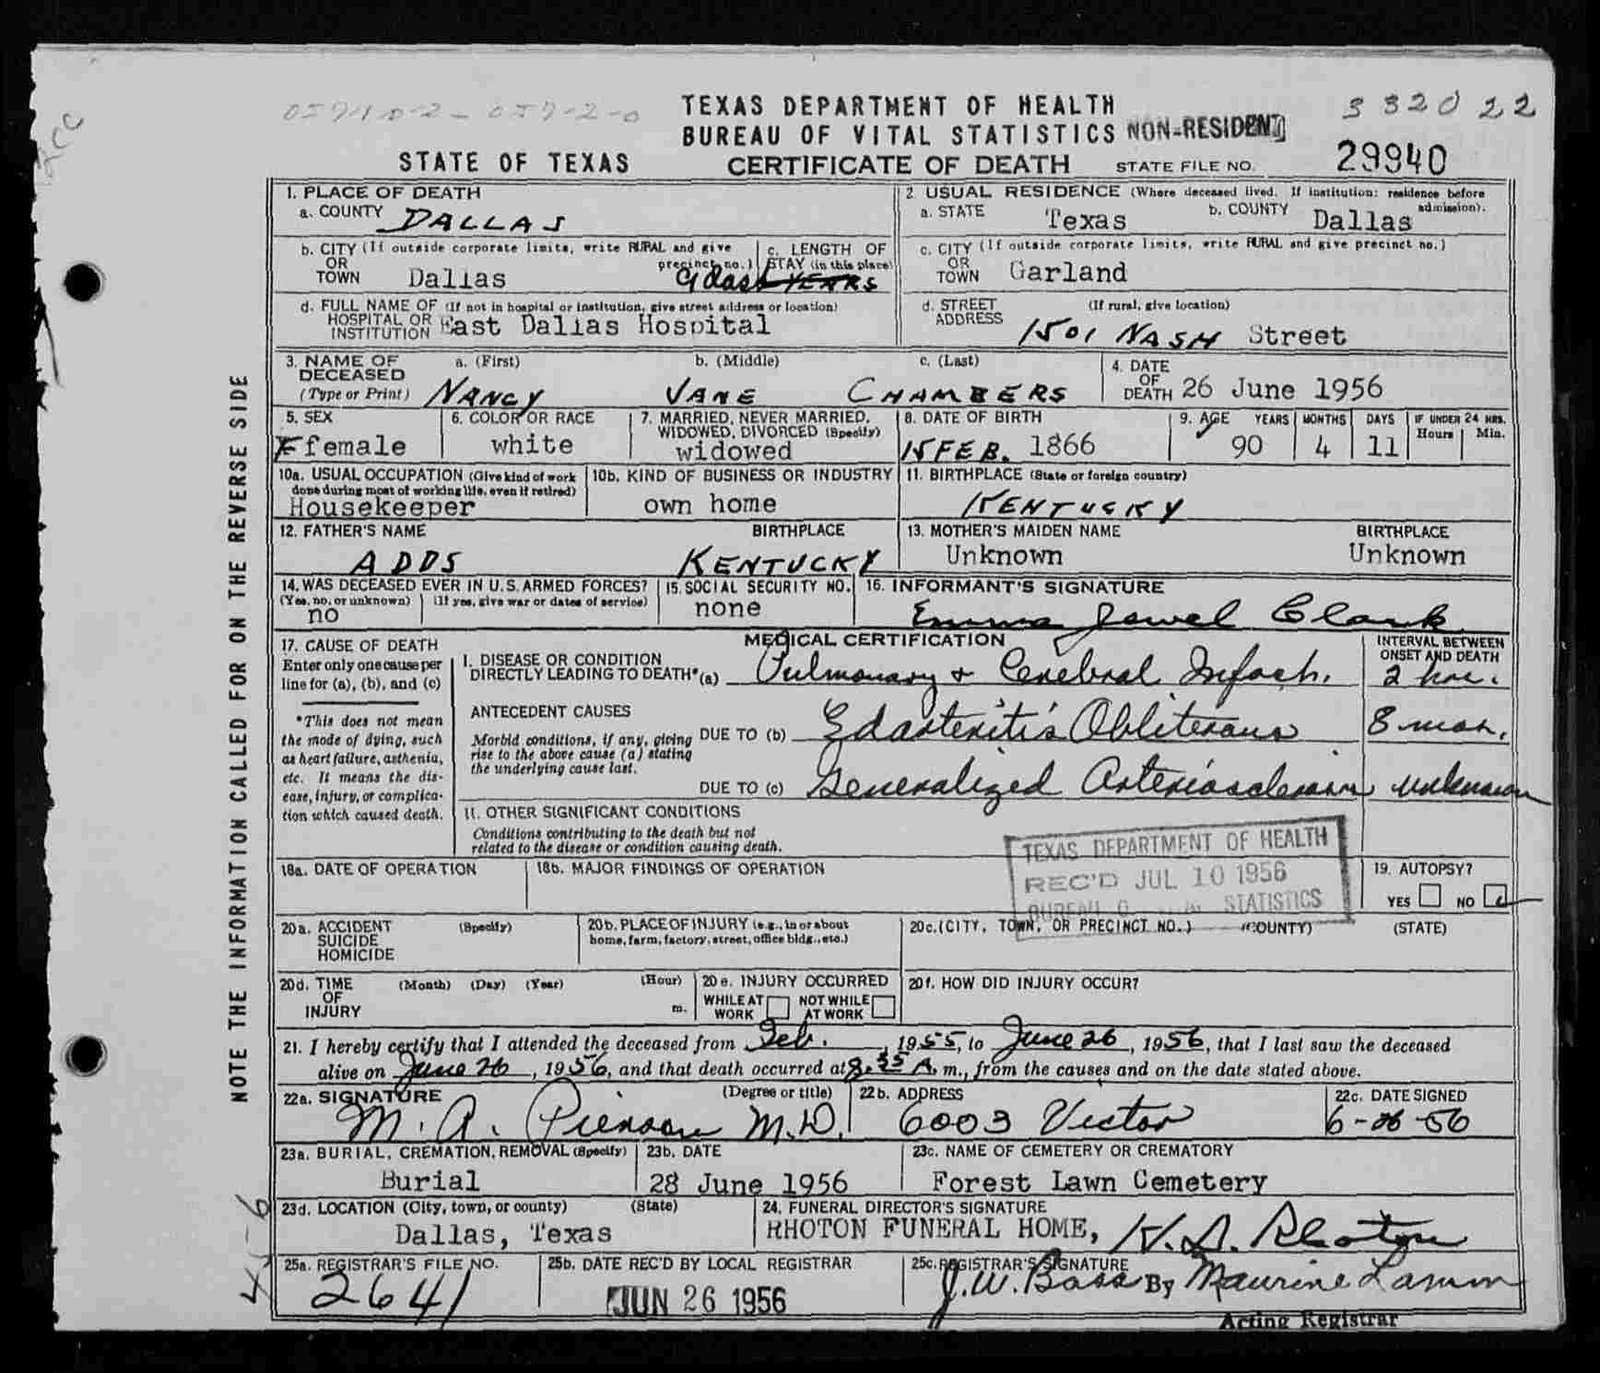 TEXAS DEPARTMENT OF HEALTH
BUREAU OF VITAL STATISTICS NON-RESIDENT
332022
STATE OF TEXAS CERTIFICATE OF DEATH STATE FILE NO. 29940
NOTE THE INFORMATION CALLED FOR ON THE REVERSE SIDE
1. PLACE OF DEATH
a. COUNTY DALLAS
2 USUAL RESIDENCE (Where deceased lived. If institution: residence before admission).
a. STATE Texas b. COUNTY Dallas
b. CITY (If outside corporate limits, write RURAL and give precinct no.)
OR
TOWN Dallas
c. LENGTH OF
STAY (in this place)
9 days YEARS
c. CITY (If outside corporate limits, write RURAL and give precinct no.)
OR
TOWN Garland
d. FULL NAME OF (If not in hospital or institution, give street address or location)
HOSPITAL OR
INSTITUTION East Dallas Hospital
d. STREET (If rural, give location)
ADDRESS 1501 NASH Street
3. NAME OF DECEASED a. (First) b. (Middle) c. (Last)
(Type or Print) NANCY JANE CHAMBERS
4. DATE
OF
DEATH 26 June 1956
5. SEX
Female
6. COLOR OR RACE
white
7. MARRIED, NEVER MARRIED,
WIDOWED, DIVORCED (Specify)
widowed
8. DATE OF BIRTH
15 FEB. 1866
9. AGE YEARS MONTHS DAYS IF UNDER 24 HRS.
Hours Min.
90 4 11
10a. USUAL OCCUPATION (Give kind of work
done during most of working life, even if retired)
Housekeeper
10b. KIND OF BUSINESS OR INDUSTRY
own home
11. BIRTHPLACE (State or foreign country)
KENTUCKY
12. FATHER'S NAME BIRTHPLACE
ADDS KENTUCKY
13. MOTHER'S MAIDEN NAME BIRTHPLACE
Unknown Unknown
14. WAS DECEASED EVER IN U.S. ARMED FORCES?
(Yes, no, or unknown) (If yes, give war or dates of service)
no
15. SOCIAL SECURITY NO.
none
16. INFORMANT'S SIGNATURE
Emma Jewel Clark
17. CAUSE OF DEATH
Enter only one cause per
line for (a), (b), and (c)
*This does not mean
the mode of dying, such
as heart failure, asthenia,
etc. It means the dis-
ease, injury, or complica-
tion which caused death.
MEDICAL CERTIFICATION
INTERVAL BETWEEN
ONSET AND DEATH
I. DISEASE OR CONDITION
DIRECTLY LEADING TO DEATH*(a) Pulmonary + Cerebral Infarch. 2 hrs.
ANTECEDENT CAUSES
Morbid conditions, if any, giving
rise to the above cause (a) stating
the underlying cause last.
DUE TO (b) Edarteritis Obliterans 8 mos.
DUE TO (c) Generalized Arteriosclerosis unknown
II. OTHER SIGNIFICANT CONDITIONS
Conditions contributing to the death but not
related to the disease or condition causing death.
TEXAS DEPARTMENT OF HEALTH
REC'D JUL 10 1956
STATISTICS
18a. DATE OF OPERATION
18b. MAJOR FINDINGS OF OPERATION
19. AUTOPSY?
YES NO
20a. ACCIDENT (Specify)
SUICIDE
HOMICIDE
20b. PLACE OF INJURY (e.g., in or about
home, farm, factory, street, office bldg., etc.)
20c. (CITY, TOWN, OR PRECINCT NO.) (COUNTY) (STATE)
20d. TIME (Month) (Day) (Year) (Hour)
OF
INJURY m.
20e. INJURY OCCURRED
WHILE AT WORK NOT WHILE AT WORK
20f. HOW DID INJURY OCCUR?
21. I hereby certify that I attended the deceased from Feb., 1955, to June 26, 1956, that I last saw the deceased
alive on June 26, 1956, and that death occurred at 8:55 A. m., from the causes and on the date stated above.
22a. SIGNATURE (Degree or title)
M. A. Pierson M.D.
22b. ADDRESS
6003 Victor
22c. DATE SIGNED
6-26-56
23a. BURIAL, CREMATION, REMOVAL (Specify)
Burial
23b. DATE
28 June 1956
23c. NAME OF CEMETERY OR CREMATORY
Forest Lawn Cemetery
23d. LOCATION (City, town, or county) (State)
Dallas, Texas
24. FUNERAL DIRECTOR'S SIGNATURE
RHOTON FUNERAL HOME,
25a. REGISTRAR'S FILE NO.
2641
25b. DATE REC'D BY LOCAL REGISTRAR
JUN 26 1956
25c. REGISTRAR'S SIGNATURE
J.W. Bass By Maurine Lamm
Acting Registrar